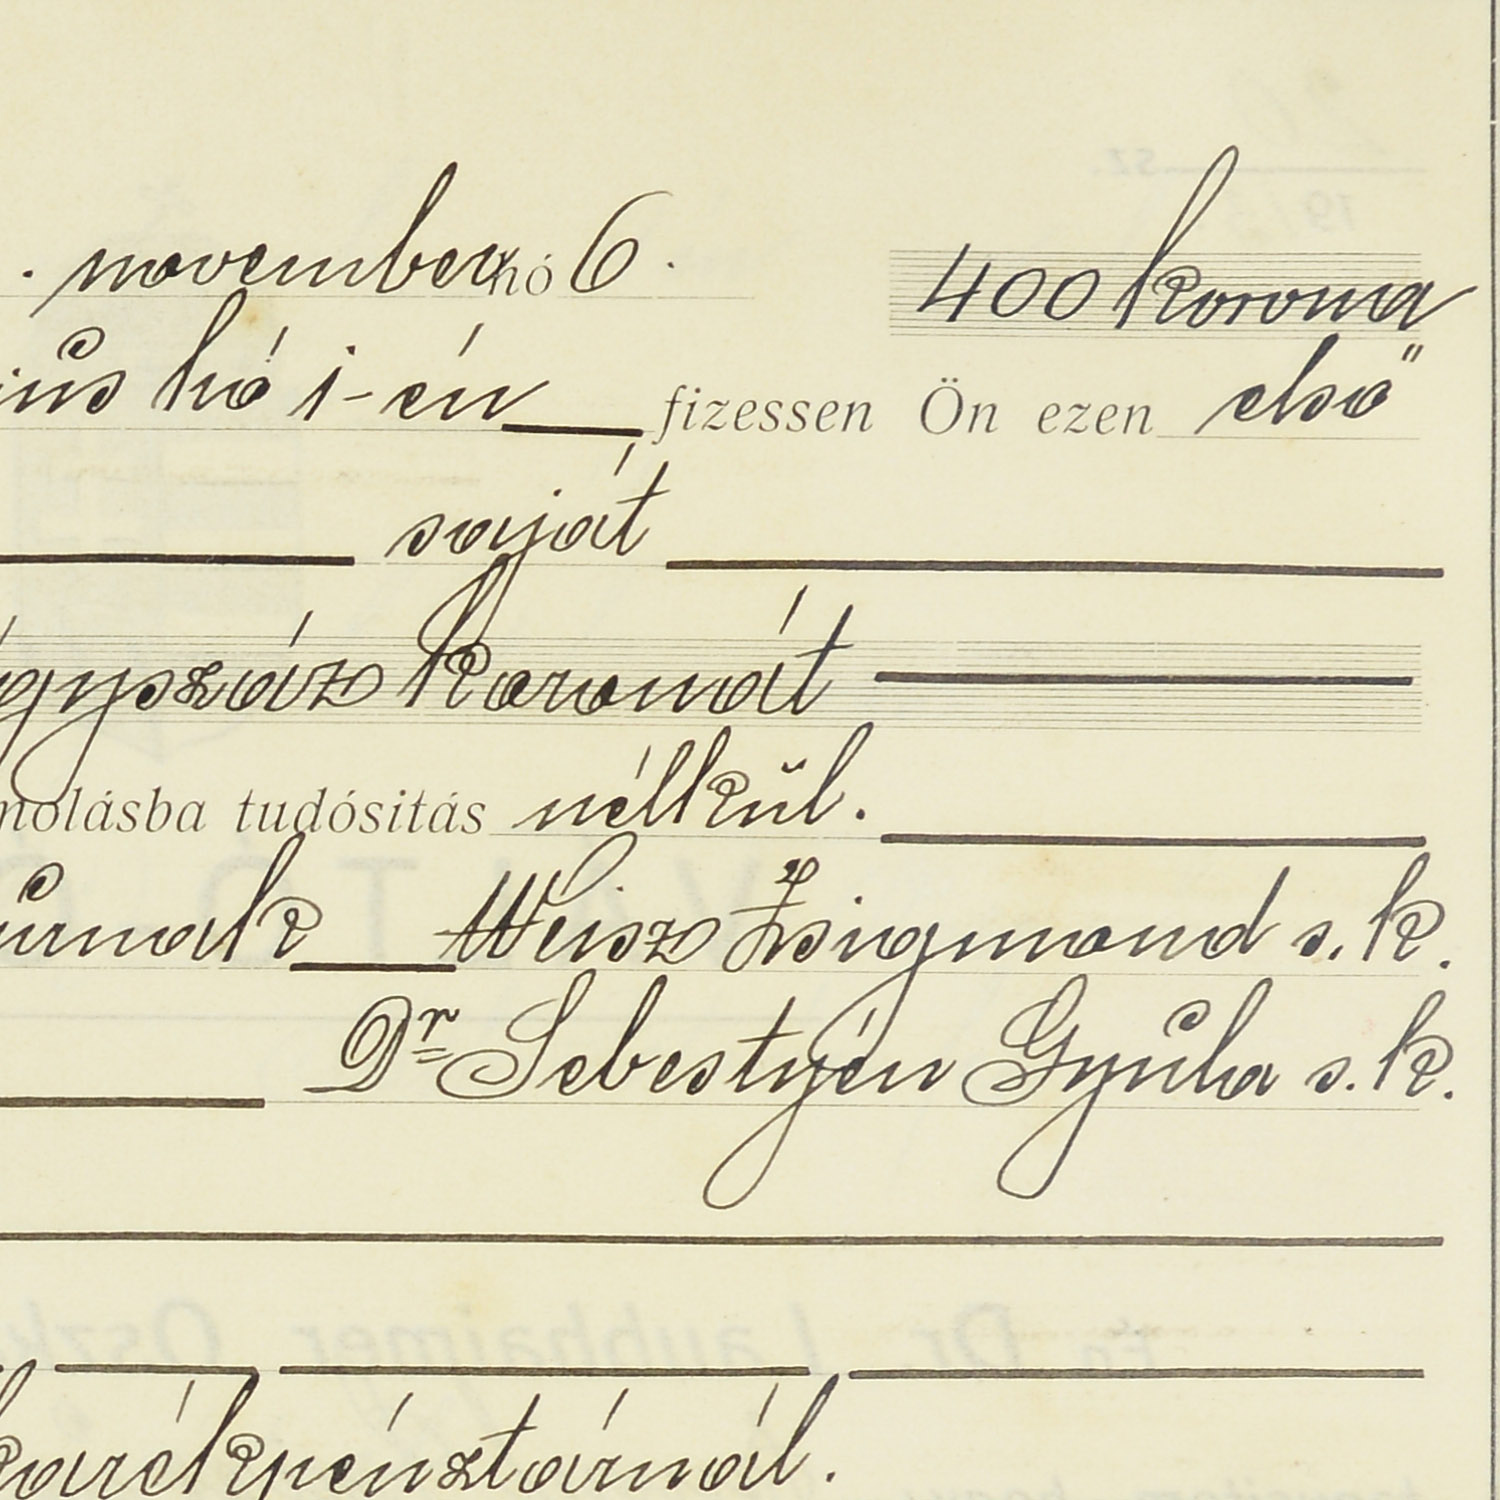 . november hó 6. 400 korona
ius hó 1-én fizessen Ön ezen első
saját
gyszáz koronát
molásba tudósítás nélkül.
úrnak Weisz Zsigmond s. k.
Dr Sebestyén Gyula s. k.
karékpénztárnál.